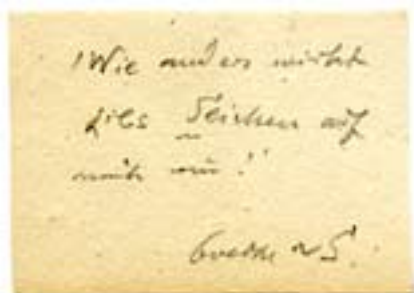 "Wie anders wirkt
dies Zeichen auf
mich ein!"
Goethe